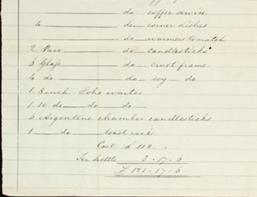 do coffee service
6 do corner dishes
do warmers to match
2 Pair do candlesticks
3 Glass do cruet frame
6 do do soy do
1 8 inch Soho waiter
1 10 do do do
6 Argentine chamber candlesticks
1 do toast rack
Cost £ 118
Tea kettle 3-17-6
£ 121-17-6